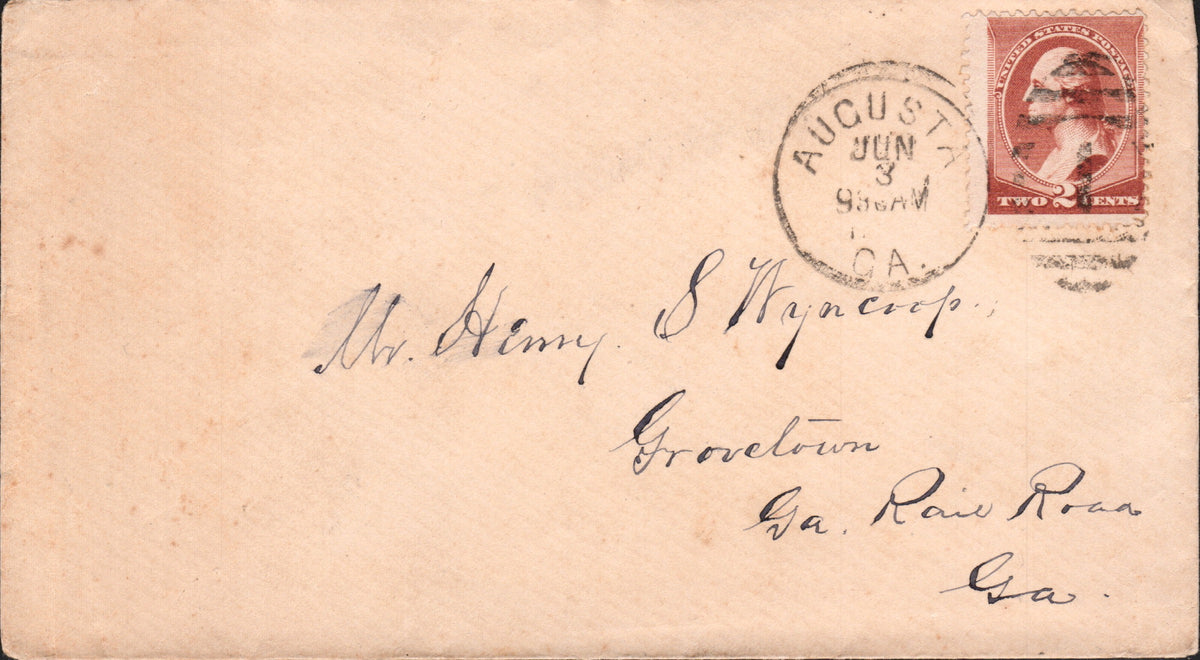 UNITED STATES POSTAGE
TWO 2 CENTS
AUGUSTA
JUN
3
930AM
GA.
Mr. Henry. S Wyncoop.,
Grovetown
Ga. Rail Road
Ga.